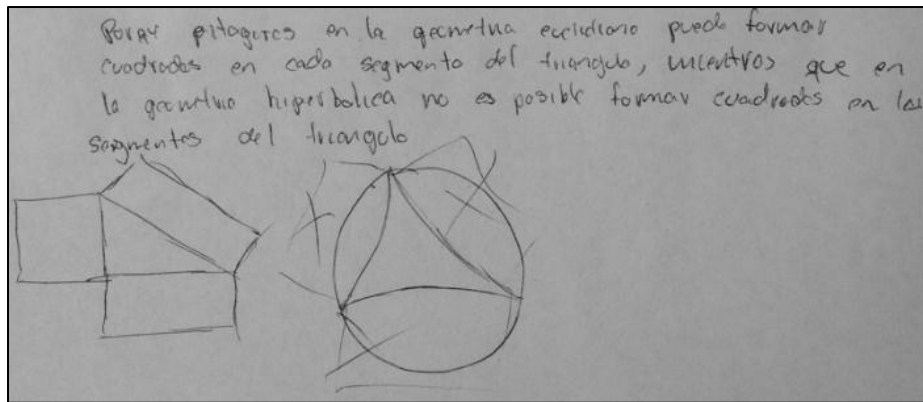 Porque pitagoras en la geometria euclidiano puedo formar
cuadrados en cada segmento del triangulo, mientras que en
la geometria hiperbolica no es posible formar cuadrados en los
segmentos del triangulo